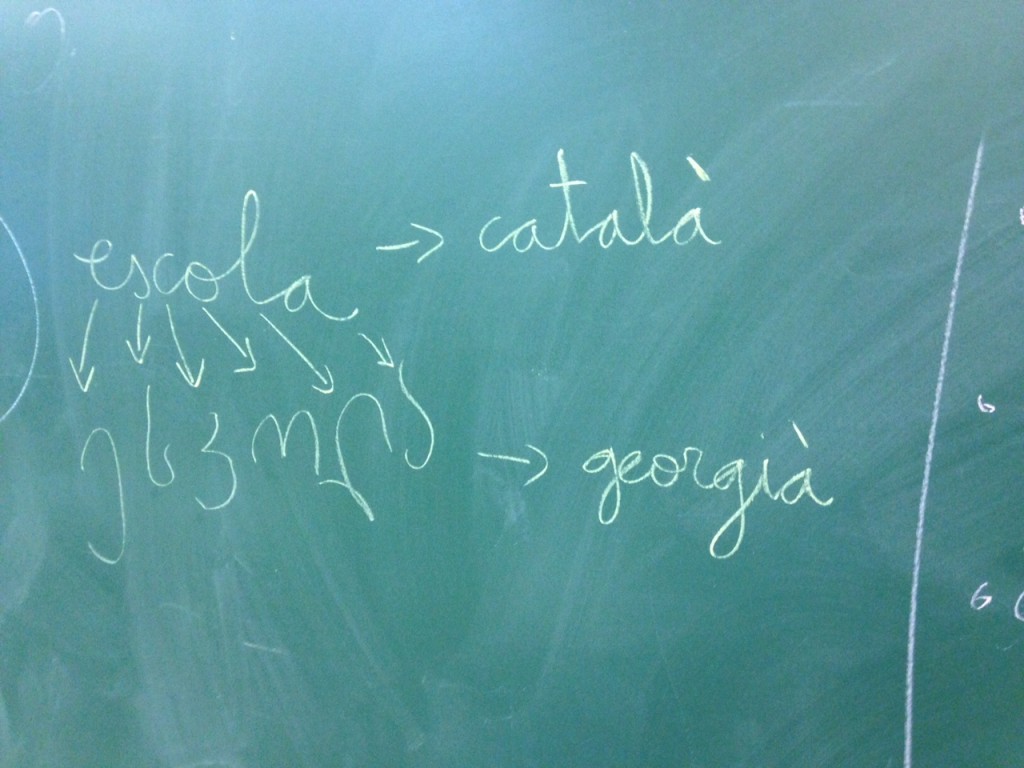 escola → català
ესკოლა → georgià